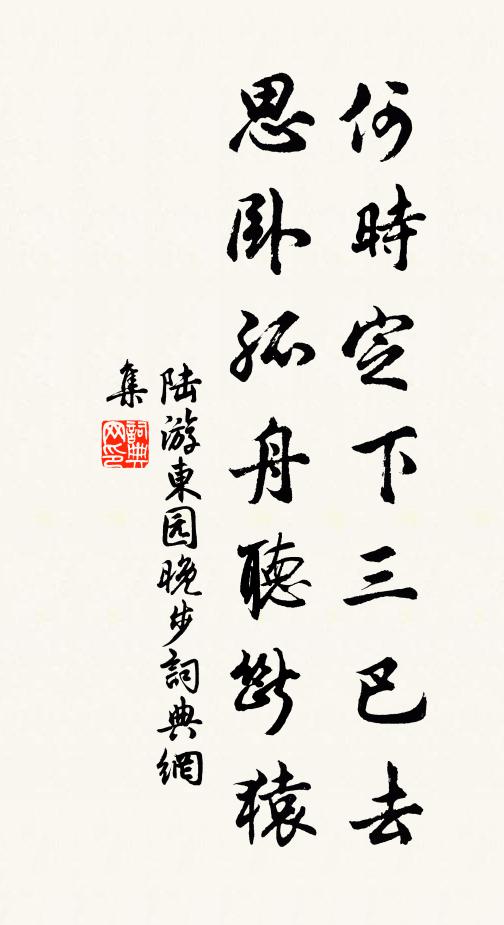 何時定下三巴去
思卧孤舟聽斷猿
陆游東园晚步詞典網
集
詞典
网印